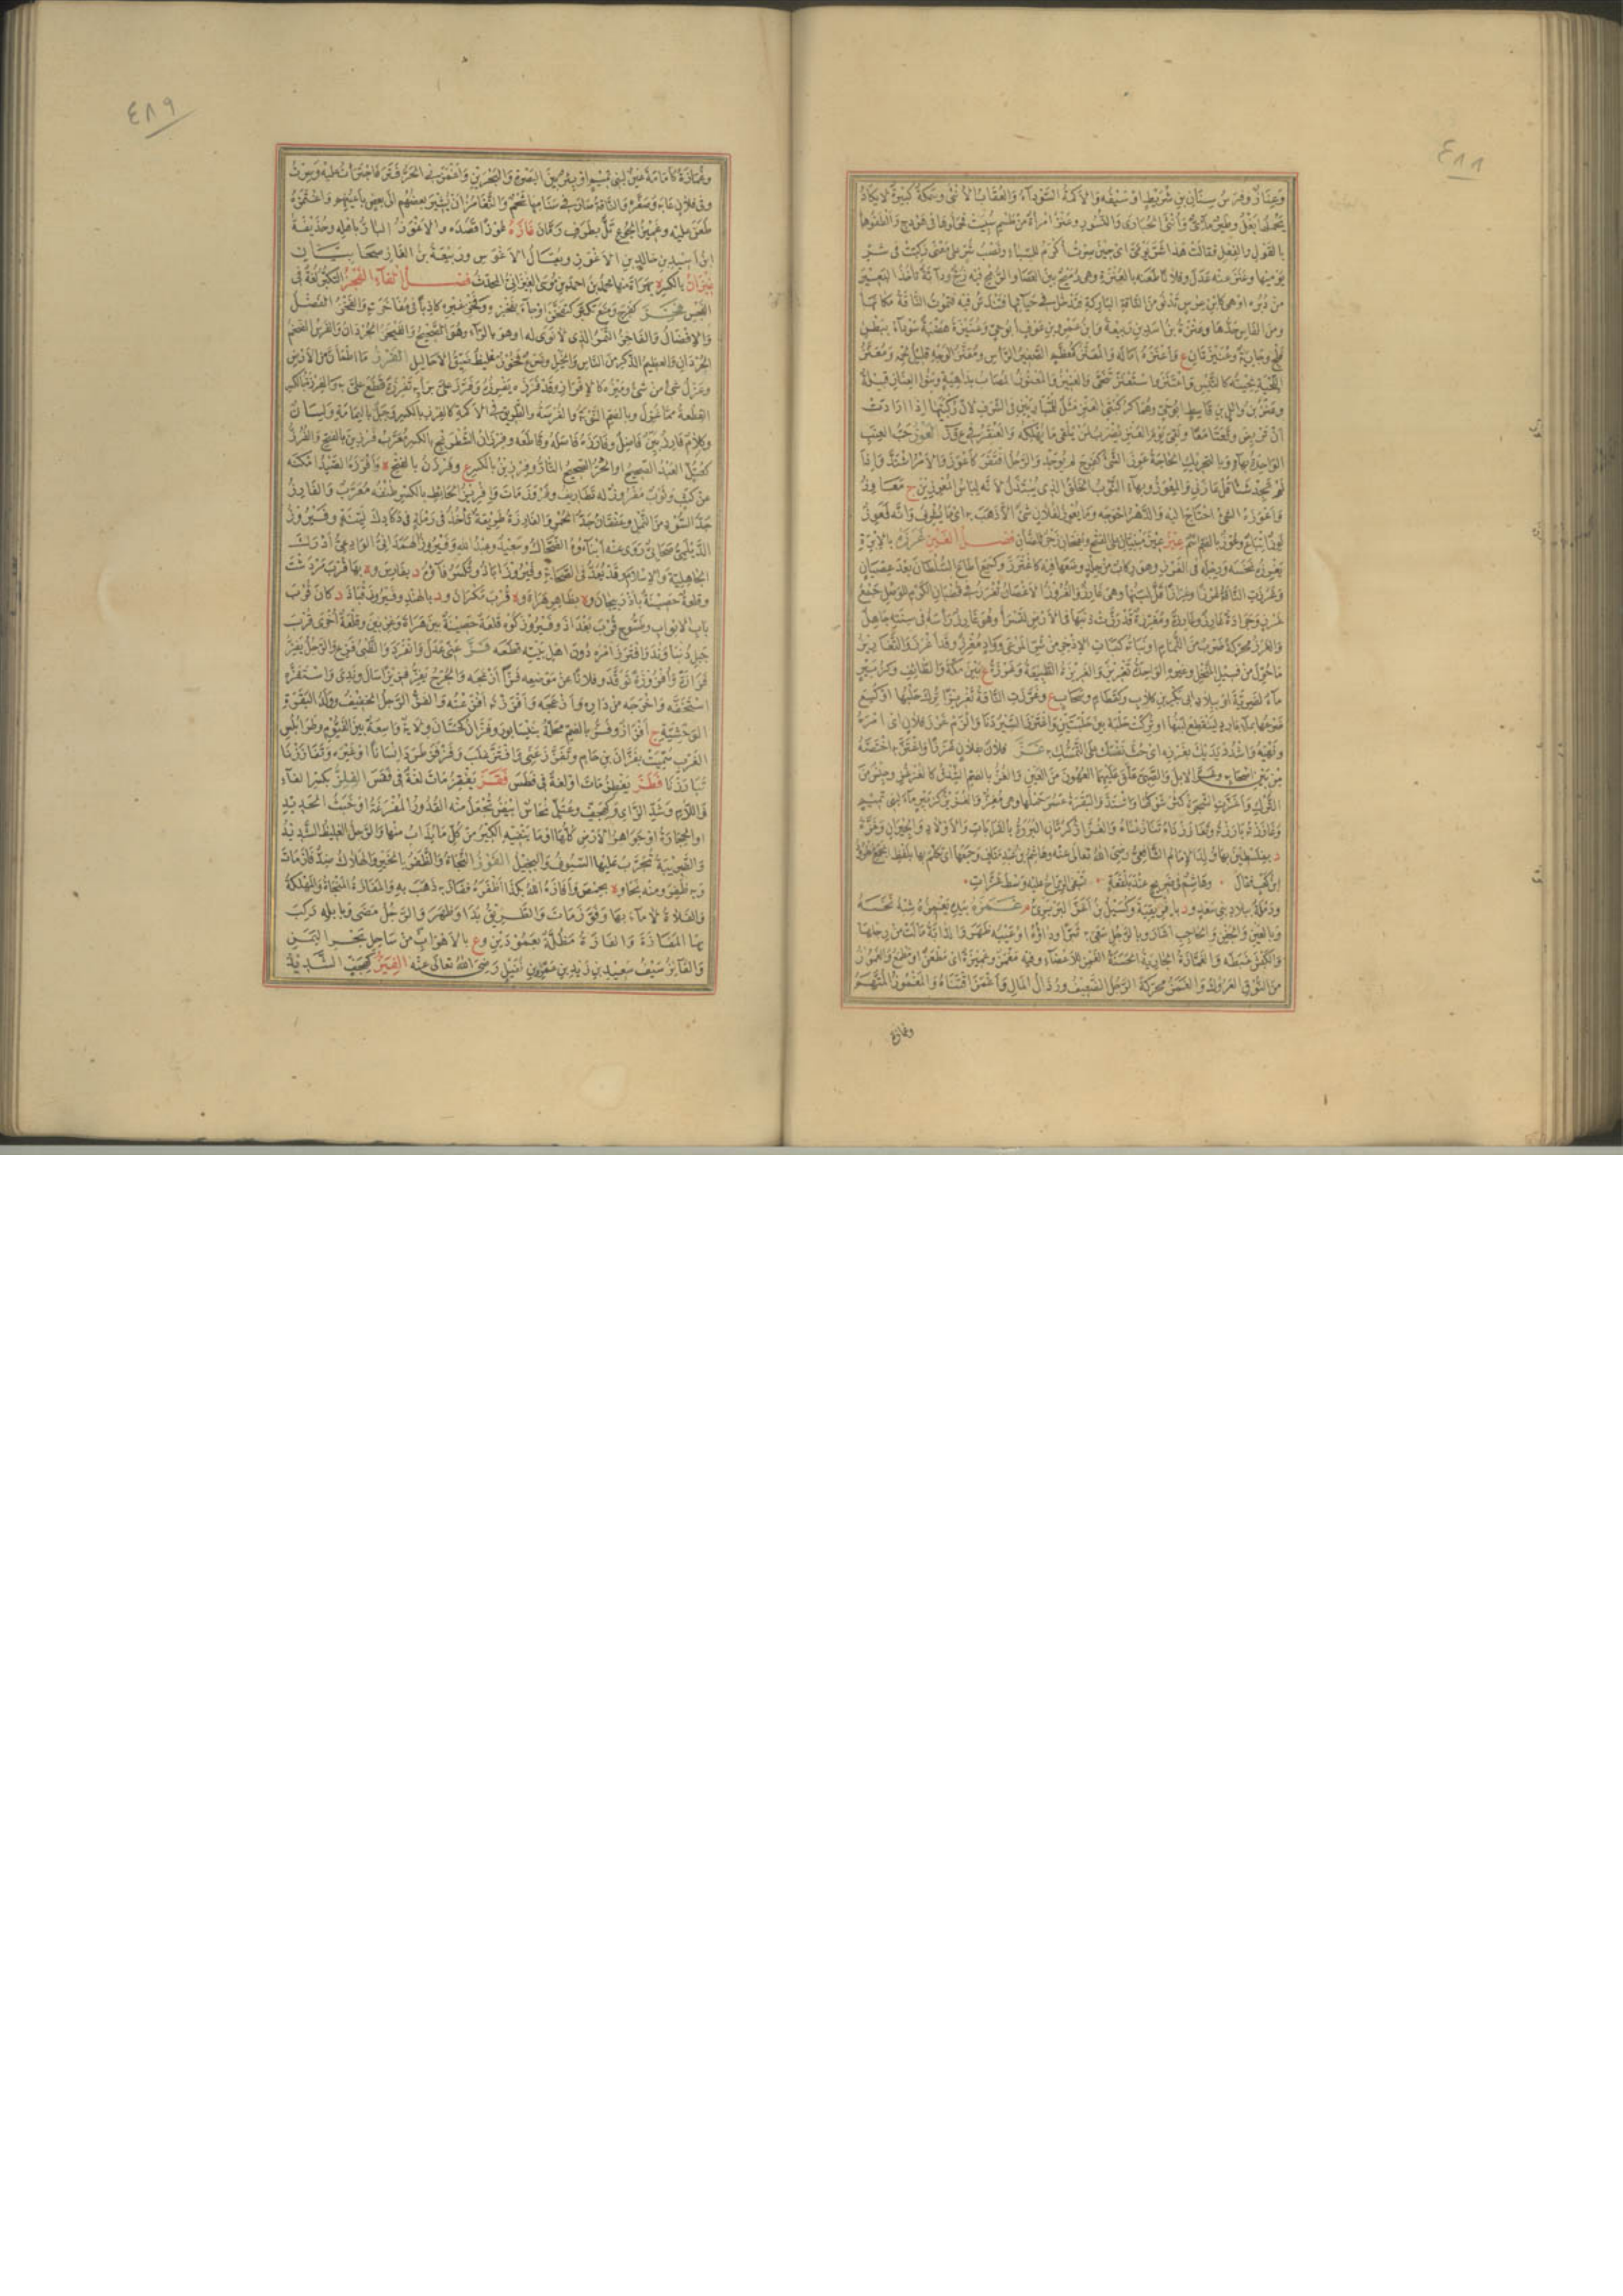 ٤٨٨
وعناز وفرس سنان بن شريط او سيفه والاكمة السوداء والعقاب الانثى وسمكة كبيرة لا يكاد
يحملها بغل وطير مائى وانثى الحبارى والنسور وعنز امرأة من طسم سبيت فحملوها فى هودج والطفوها
بالقول والفعل فقالت هذا شر يومى اى حين صرت اكرم للسباء ونصب شر على معنى ركبت فى شر
يوميها وعنز عنه عدل وفلانا طعنه بالعنزة وهى رميح بين العصا والرمح فيه زج ودابة تاخذ البعير
من دبره او هى كابن عرس تدنو من الناقة الباركة فتدخل فى حيائها فتندس فيه فتموت الناقة مكانها
ومن الفاس حدها وعنزة بن اسد بن ربيعة وابن عمرو بن عوف ابو حى وعنيزة هضبة سوداء ببطن
فلج وجارية وعنيزتان ع واعنزه اماله والمعنز كمعظم الصغير الراس ومعنز الوجه قليل لحمه ومعنز
اللحية لحيته كالتيس واعتنز واستعنز تنحى والعنيز والمعنوز المصاب بداهية وبنو العناز قبيلة
وعنز بن وائل بن قاسط ابو حى وهما كركبتى العنز مثل للمتباريين فى الشرف لان ركبتيها اذا ارادت
ان تربض وقعتا معا ولقى يوم العنز يضرب لمن يلقى ما يهلكه والعنقز فى ع ق ز العوز حب العنب
الواحدة بهاء وبالتحريك الحاجة عوز الشئ كفرح لم يوجد والرجل افتقر كاعوز والامر اشتد واذا
لم تجد شيئا قل عازنى والمعوز وبهاء الثوب الخلق الذى يبتذل لانه لباس المعوزين ج معاوز
واعوزه الشئ احتاج اليه والدهر احوجه وما يعوز لفلان شئ الا ذهب به اى ما يشرف وانه لعوز
لوز اتباع وعوز بالضم اسم عيز عيز مبنيان على الفتح ويخفضان زجر للضان فصل الغين غرزه بالابرة
يغرزه نخسه ورجله فى الغرز وهو ركاب من جلد وضعها فيه كاغترز وكسمع اطاع السلطان بعد عصيان
وغرزت الناقة غرزا وغرازا قل لبنها وهى غارز والغروز الاغصان تغرز فى قضبان الكرم للوصل جمع
غرز وجرادة غارز وغارزة ومغرزة قد رزت ذنبها فى الارض لتسرأ وهو غارز راسه فى سنته جاهل
والغرز محركة ضرب من الثمام او نباته كنبات الاذخر من شر المرعى وواد مغرز وقد اغرز والتغاريز
ما حول من فسيل النخل وغيره الواحد تغريز والغريزة الطبيعة وغرزة ع بين مكة والطائف وكزبير
ماء لضرية او ببلاد ابى بكر بن كلاب وكقطام وسحاب ع وغرزت الناقة تغريزا ترك حلبها او كسع
ضرعها بماء بارد لينقطع لبنها او تركت حلبة بين حلبتين واغترز السير دنا والزم غرز فلان اى امره
ونهيه واشدد يديك بغرزه اى حث نفسك على التمسك به غز فلان بفلان غززا واغتز به اختصه
من بين اصحابه وعلى الابل والصبى علق عليهما العهون من العين والغز بالضم الشدق كالغزغز وجنس من
الترك واغزت الشجرة كثر شوكها واشتد والبقرة عسر حملها وهى مغز والغزيز كزبير ماء لبنى تميم
وغاززته بارزته وتغاززناه تنازعناه والغزاز كرمان البروع بالقرابات والاولاد والجيران وغزة
د بفلسطين بها ولد الامام الشافعى رضى الله تعالى عنه ومات هاشم بن عبد مناف وجمعها اى تكلم بها بلفظ الجمع مطرود
ابن كعب فقال وهاشم فى ضريح عند بلقعة تسفى الرياح عليه وسط غزات
ورملة ببلاد بنى سعد و د بافريقية وكسيل بن اغز البربرى م غمزه بيده يغمزه شبه نخسه
وبالعين والجفن والحاجب اشار وبالرجل سعى به شرا وداؤه او عيبه ظهر والدابة مالت من رجلها
والكبش غبطه والغمازة الجارية الحسنة الغمز للاعضاء وفيه مغمز وغميزة اى مطعن او مطمع والغموز
من النوق العروك والغمز محركة الرجل الضعيف ورذال المال واغمز اقتناه والمغموز المتهم
وغمازة
٤٨٩
وغمازة كامامة عين لبنى تميم او بئر بين البصرة والبحرين واغمزنى الحر فتر فاجترأت عليه وسرت
وفى فلان عابه وصغره والناقة صار فى سنامها شحم والتغامز ان يشير بعضهم الى بعض باعينهم واغتمزه
طعن عليه وغميز الجوع تل بطرف رمان غازه غوزا قصده والاغوز البار باهله وحذيفة
ابن اسيد بن خالد بن الاغوز ويقال الاغوس وربيعة بن الغاز صحابيان
غيزان بالكسر ة بهراة منها محمد بن احمد بن موسى الغيزانى المحدث فصل الفاء الفجز التكبر لغة فى
الفجس فحز كفرح ومنع تكبر كتفحز او جاء بفخره وفخر غيره كاذبا فى مفاخرته والفخز الفضل
والافضال والفاخز التمر الذى لا نوى له او هو بالراء وهو الصحيح والفيخز الجردان والفرس الضخم
الجردان والعظيم الذكر من الناس والخيل وضرع فخوز غليظ ضيق الاحاليل الفرز ما اطمأن من الارض
وعزل شئ من شئ وميزه كالافراز وقد فرزه يفرزه وفرز على برأيه تفريزا قطع على به والفرزة بالكسر
القطعة مما عزل وبالضم النوبة والفرصة والطريق فى الاكمة كالفرز بالكسر وجبل باليمامة ولسان
وكلام فارز بين فاصل وفارزه فاصله وقاطعه وفرزان الشطرنج بالكسر معرب فرزين بالفتح والفرز
كعتل العبد الصحيح او الحر الصحيح التار وفرزين بالكسر ع وفرزن بالفتح ة وافرزه الصيد امكنه
من كثب وثوب مفروز له تطاريف وفروز مات وافريز الحائط بالكسر طنفه معرب والفارز
جد السود من النمل وعقفان جد الحمر والفارزة طريقة تاخذ فى رملة فى دكادك لينة وفيروز
الديلمى صحابى روى عنه ابناءه الضحاك وسعيد وعبد الله وفيروز الهمدانى الوادعى ادرك
الجاهلية والاسلام وقد يعد فى الصحابة وفيروز اباذ وتكسر فاؤه د بفارس و ة بها قرب مردشت
وقلعة حصينة باذربيجان و ة بظاهر هراة و ة قرب مكران و د بالهند وفيروز قباذ د كان قرب
باب الابواب وطسوج قرب بغداد وفيروز كوه قلعة حصينة بين هراة وغزنين وقلعة اخرى قرب
جبل دنباوند وافترز امره دون اهل بيته قطعه فز عنى عدل وانفرد والظبى فزع والرجل يفز
فزازة وافزوزة توقد وفلانا عن موضعه فزا ازعجه والجرح يفز فزيزا سال وندى واستفزه
استخفه واخرجه من داره وازعجه وافززته افزعته والفز الرجل الخفيف وولد البقرة
الوحشية ج افزاز وفز بالضم محلة بنيسابور وفزان ككتان ولاية واسعة بين الفيوم وطرابلس
الغرب سميت بفزان بن حام وتفزز عنى وافتز غلب وفزفز طرد انسانا او غيره وتفاززنا
تبارزنا فطز يفطز مات او لغة فى فطس فقز يفقز مات لغة فى فقس الفلز بكسر الفاء
واللام وشد الزاى وكهجف وعتل نحاس ابيض تجعل منه القدور المفرغة او خبث الحديد
او الحجارة او جواهر الارض كلها او ما ينفيه الكير من كل ما يذاب منها والرجل الغليظ الشديد
والضريبة تجرب عليها السيوف والبخيل الفوز النجاة والظفر بالخير والهلاك ضد فاز مات
وبه ظفر ومنه نجا و ة بحمص وافازه الله بكذا اظفره ففاز به ذهب به والمفازة المنجاة والمهلكة
والفلاة لا ماء بها وفوز مات والطريق بدا وظهر والرجل مضى وبابله ركب
بها المفازة والفازة مظلة بعمودين و ع بالاهواب من ساحل بحر اليمن
والفائز سيف سعيد بن زيد بن عمرو بن نفيل رضى الله تعالى عنه الفيز كهجف الشديد